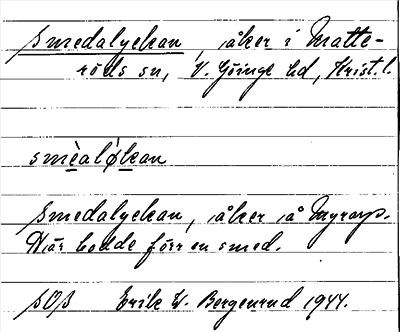 Smedalyckan, åker i Matte-
röds sn, V. Göinge hd, Krist. l.
smèaló̱kan
Smedalyckan, åker å Myrarp.
Där bodde förr en smed.
SOS Erik W. Bergenrud 1944.